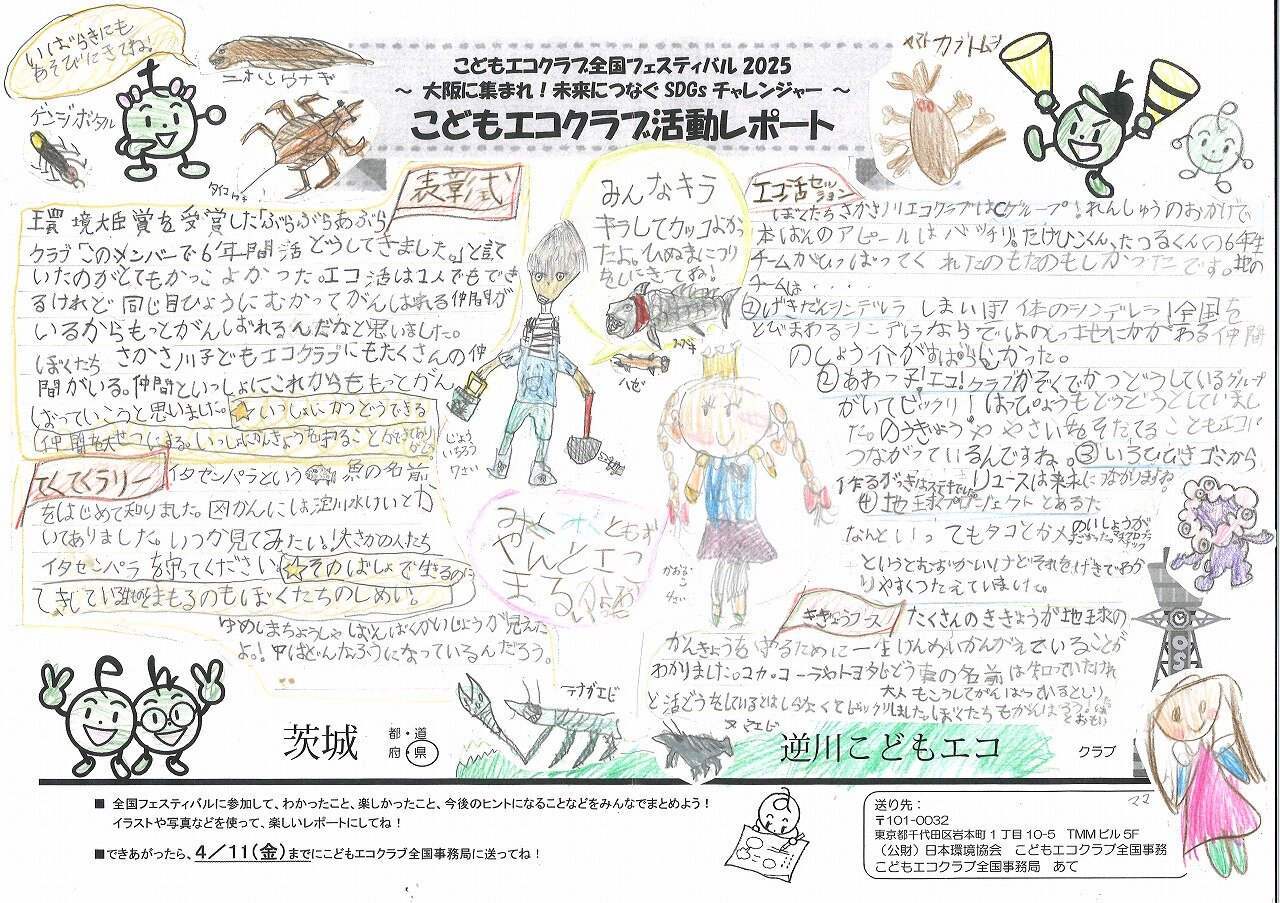 いばらきにも
あそびにきてね！
ゲンジボタル
ニホンウナギ
タイコウチ
こどもエコクラブ全国フェスティバル 2025
～ 大阪に集まれ！未来につなぐ SDGs チャレンジャー ～
こどもエコクラブ活動レポート
ヤマトカブトムシ
表彰式
環境大臣賞を受賞した「ぶらぶらあぶら
クラブ「このメンバーで6年間活どうしてきました。」と言て
いたのがとてもかっこよかった。エコ活は1人でもでき
るけれど同じ目ひょうにむかってがんばれる仲間が
いるからもっとがんばれるんだなと思いました。
ぼくたち さかさ川子どもエコクラブにもたくさんの仲
間がいる。仲間といっしょにこれからももっとがん
ばっていこうと思いました。☆いっしょにかつどうできる
仲間を大せつにする。いっしょにかんきょうを守ることができてありがとう
てくてくラリー
イタセンパラという魚の名前
をはじめて知りました。図かんには淀川水けいとか
いてありました。いつか見てみたい！大さかの人たち
イタセンパラを守ってください。☆そのばしょで生るのに
てきしている生きものをまもるのもぼくたちのしめい。
ゆめしまちょうしゃ ばんぱくかいじょうが見えた
よ。！中はどんなふうになっているんだろう。
みんなキラ
キラしてカッコよかっ
たよ。ひぬまにつり
をしにきてね！
スズキ
ハゼ
じょう
いちろう
7さい
みんなともだち
やんとエコ
まるからね
かおるこ
4さい
エコ活セッション
ぼくたちさかさ川エコクラブはCグループ！れんしゅうのおかげで、
本ばんのアピールはバッチリ。たけひこくん、たつるくんの6年生
チームがひっぱってくれたのもたのもしかったです。他の
チームは・・・・
①げきだんシンデレラ しまいは1体のシンデレラ！全国を
とびまわるシンデレラならではの土地にかかわる仲間
のしょう介がすばらしかった。
②あわっ子！エコ！クラブかぞくでかつどうしているグループ
がいてビックリ！はっぴょうもどうどうとしていまし
た。のうぎょうややさいをそだてることもエコに
つながっているんですね。③いろひびきゴミから
作るがっきはステキでした。リユースは未来につながりますね。
④地球プロジェクトとあるた
なんといってもタコとカメのいしょうがよかった。マイクロプラスチック
というとむずかしいけどそれをげきでわか
りやすくつたえていました。
ききょうブース
たくさんのききょうが地球の
かんきょうを守るために一生けんめいかんがえていることが
わかりました。コカ・コーラやトヨタじどう車の名前は知っていたけれ
ど活どうをしているとはしらなくてビックリしました。ぼくたちもがんばろうとおもい
大人もこうしてがんばっているとしり
テナガエビ
ヌマエビ
茨城
都・道
府・県
逆川こどもエコ
クラブ
ママ
■ 全国フェスティバルに参加して、わかったこと、楽しかったこと、今後のヒントになることなどをみんなでまとめよう！
イラストや写真などを使って、楽しいレポートにしてね！
■できあがったら、4／11(金)までにこどもエコクラブ全国事務局に送ってね！
送り先：
〒101-0032
東京都千代田区岩本町１丁目10-5 TMMビル5F
（公財）日本環境協会 こどもエコクラブ全国事務
こどもエコクラブ全国事務局 あて